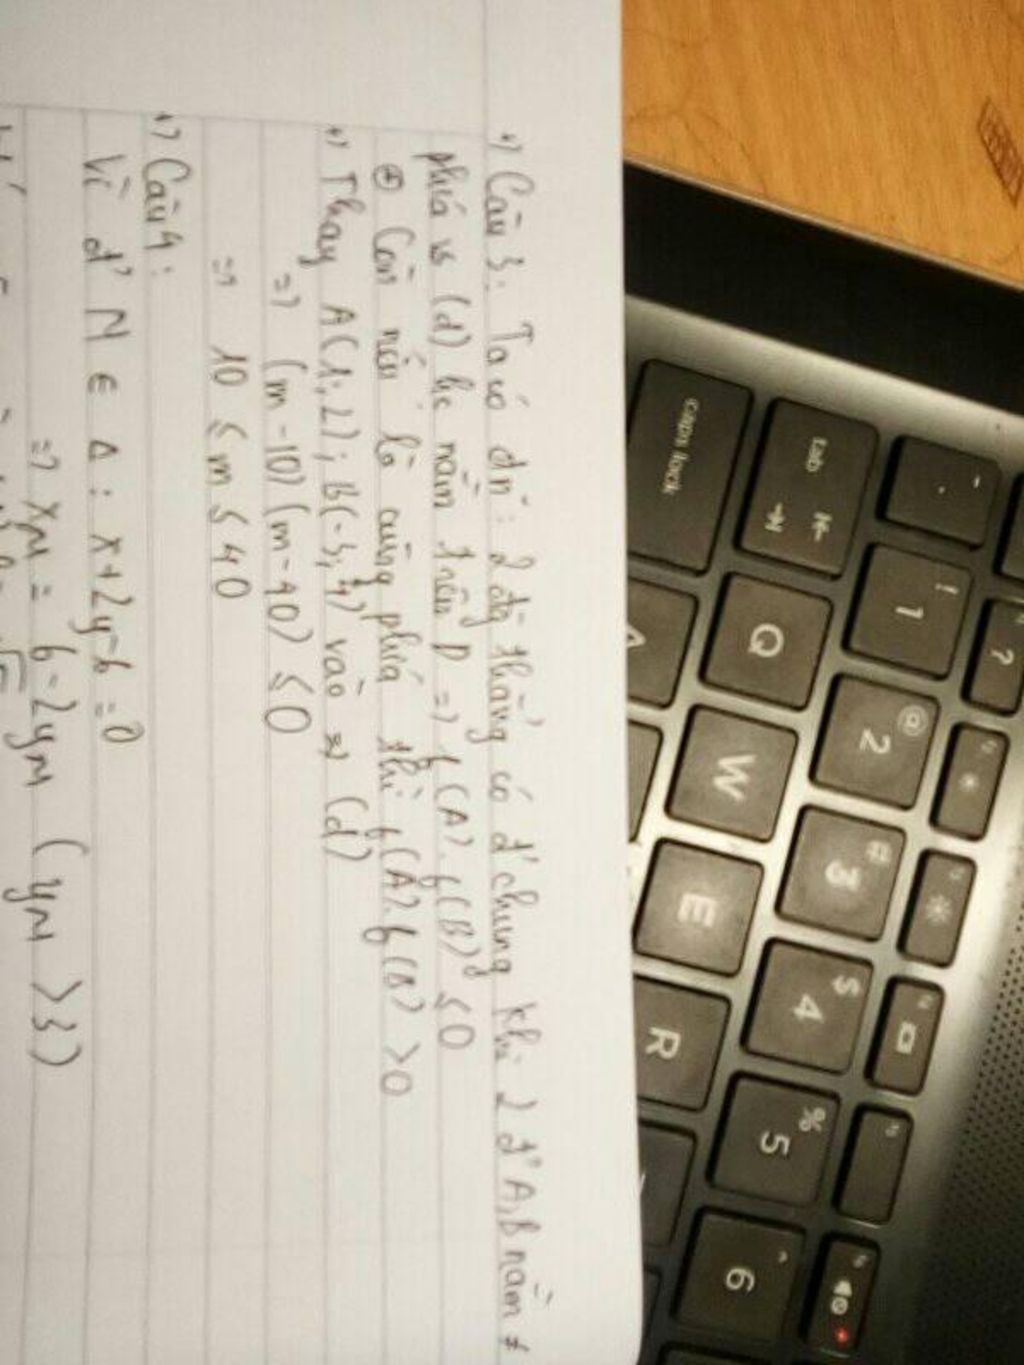 +) Câu 3: Ta có đn: 2 đg thẳng có đ' chung khi 2 đ' A, B nằm ≠
phía vs (d) hc nằm trên D => f(A).f(B) ≤ 0
⊕ Còn nếu là cùng phía thì f(A).f(B) > 0
+) Thay A(1;2); B(-3;4) vào => (d)
=> (m-10)(m-40) ≤ 0
=> 10 ≤ m ≤ 40
+) Câu 4:
Vì đ' M ∈ Δ: x+2y-6=0
=> xM = 6-2yM (yM > 3)
~
`
! 1
?
@ 2
# 3
$ 4
% 5
^ 6
tab
Q
W
E
R
caps lock
A